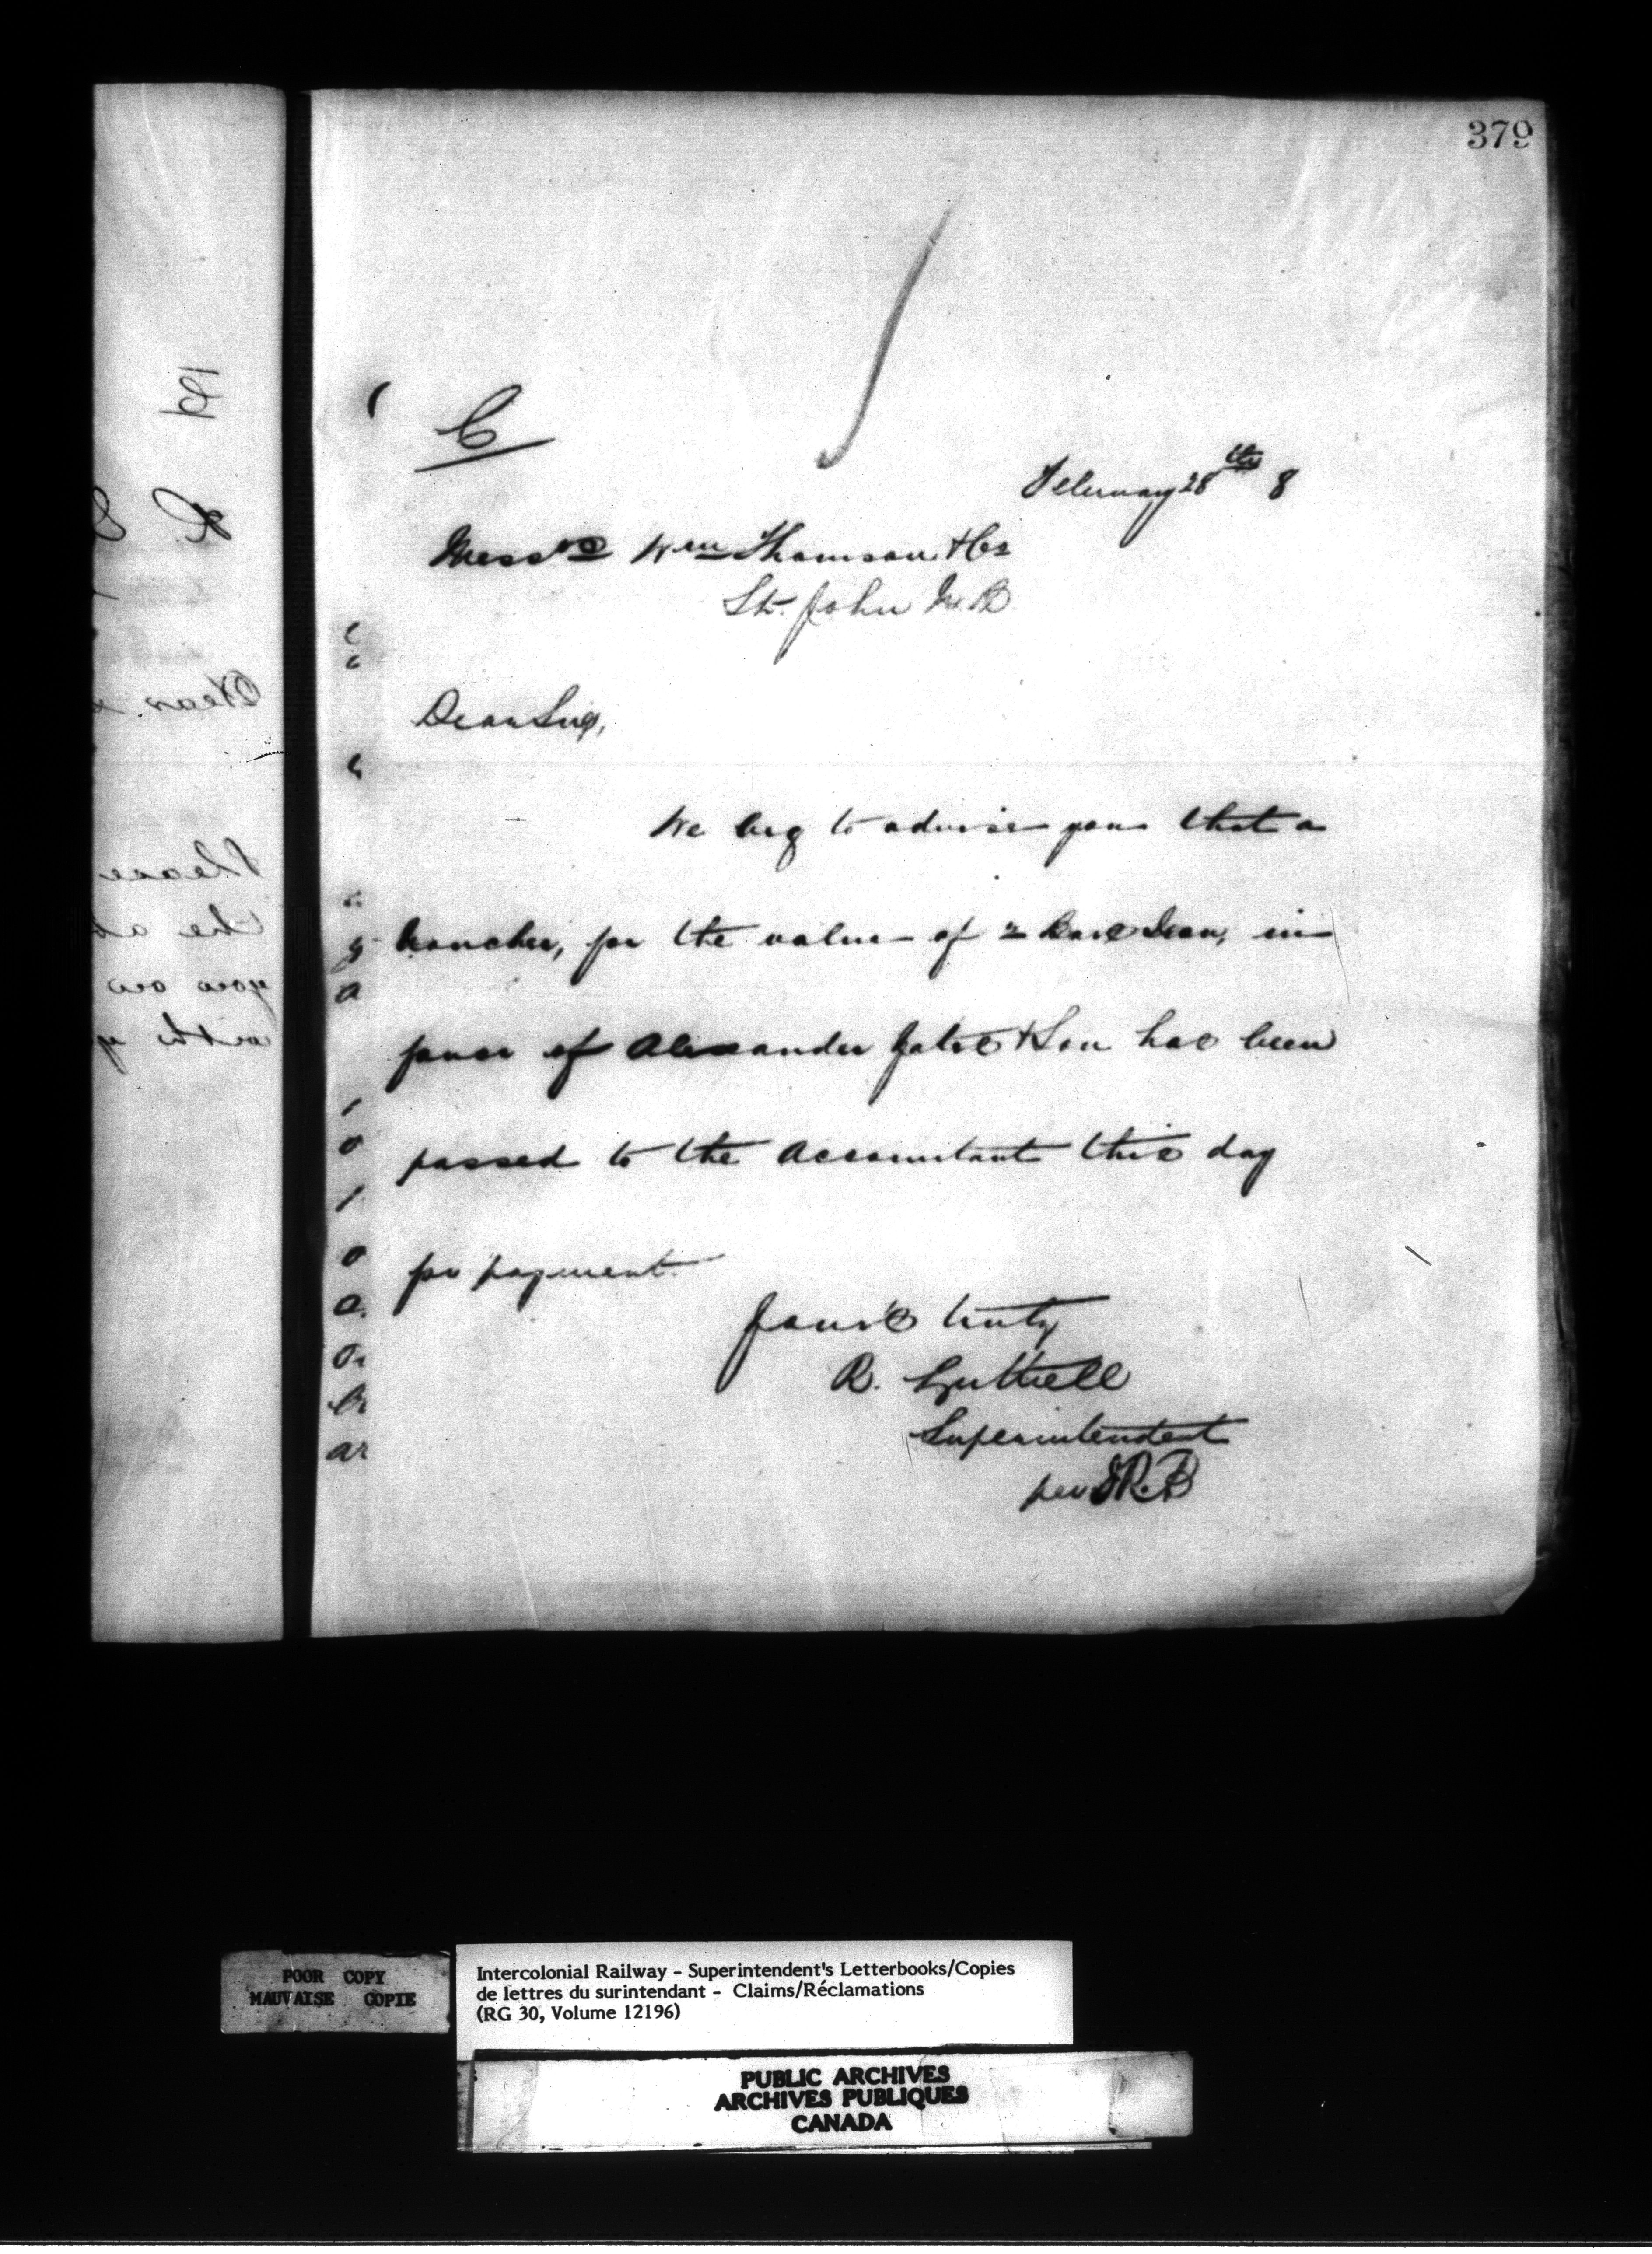 379
C
February 28th 8
Messrs Wm Thomson & Co
St. John N.B.
Dear Sirs,
We beg to advise you that a
voucher, for the value of 2 Bars Iron, in
favor of Alexander Yates & Son has been
passed to the Accountant this day
for payment.
Yours truly
R. Luttrell
Superintendent
per R.B
POOR COPY
MAUVAISE COPIE
Intercolonial Railway - Superintendent's Letterbooks/Copies
de lettres du surintendant - Claims/Réclamations
(RG 30, Volume 12196)
PUBLIC ARCHIVES
ARCHIVES PUBLIQUES
CANADA